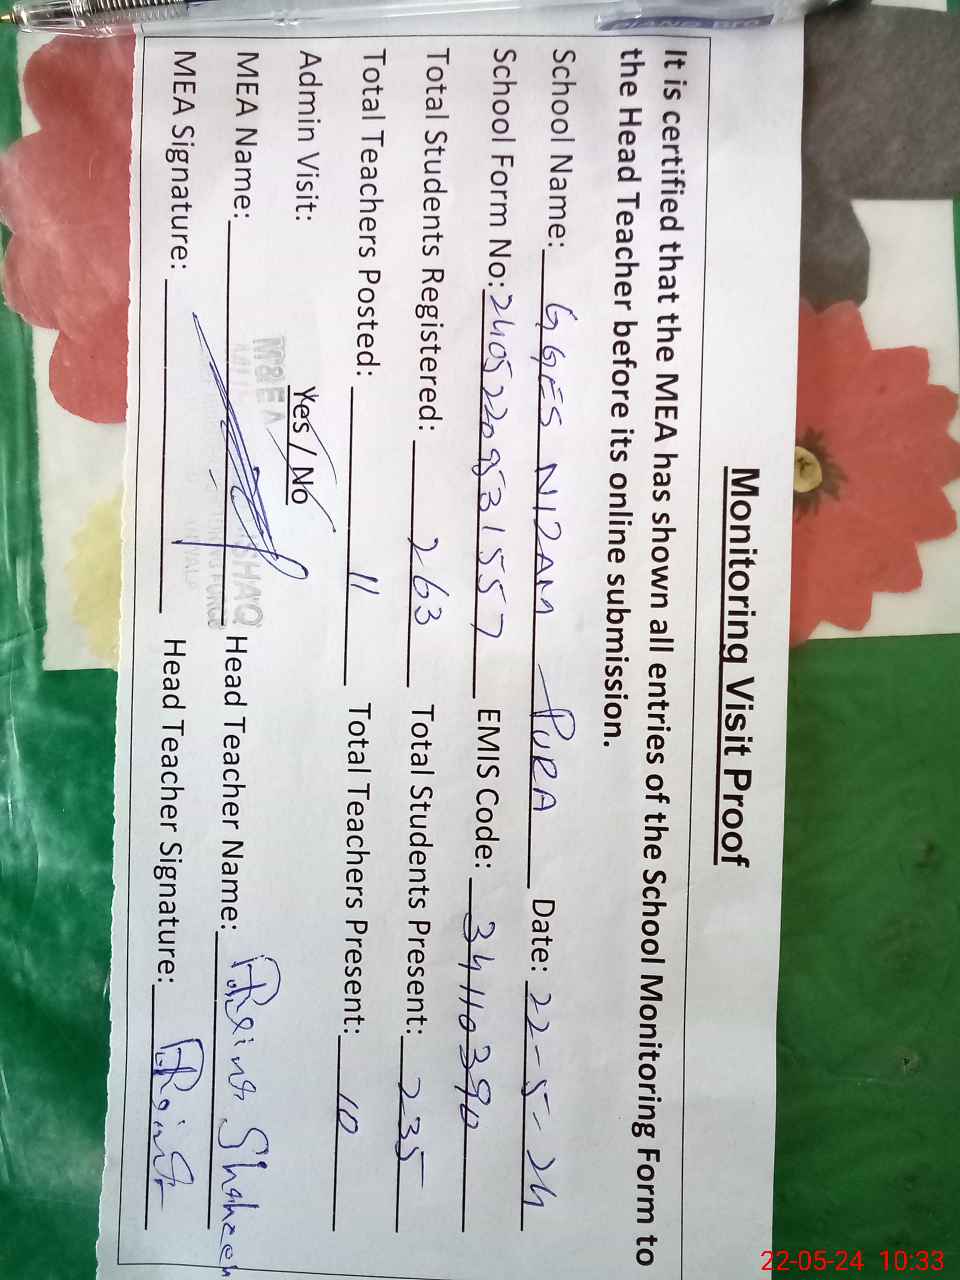 PIANO Pro
Monitoring Visit Proof
It is certified that the MEA has shown all entries of the School Monitoring Form to
the Head Teacher before its online submission.
School Name: GGES NIZAM PURA Date: 22-5-24
School Form No: EMIS Code: 34110390
Total Students Registered: 263 Total Students Present: 235
Total Teachers Posted: 11 Total Teachers Present: 10
Admin Visit: Yes / No
M&EA
MEA Name: SHAQ Head Teacher Name: Shaheen
MEA Signature: Head Teacher Signature:
22-05-24 10:33